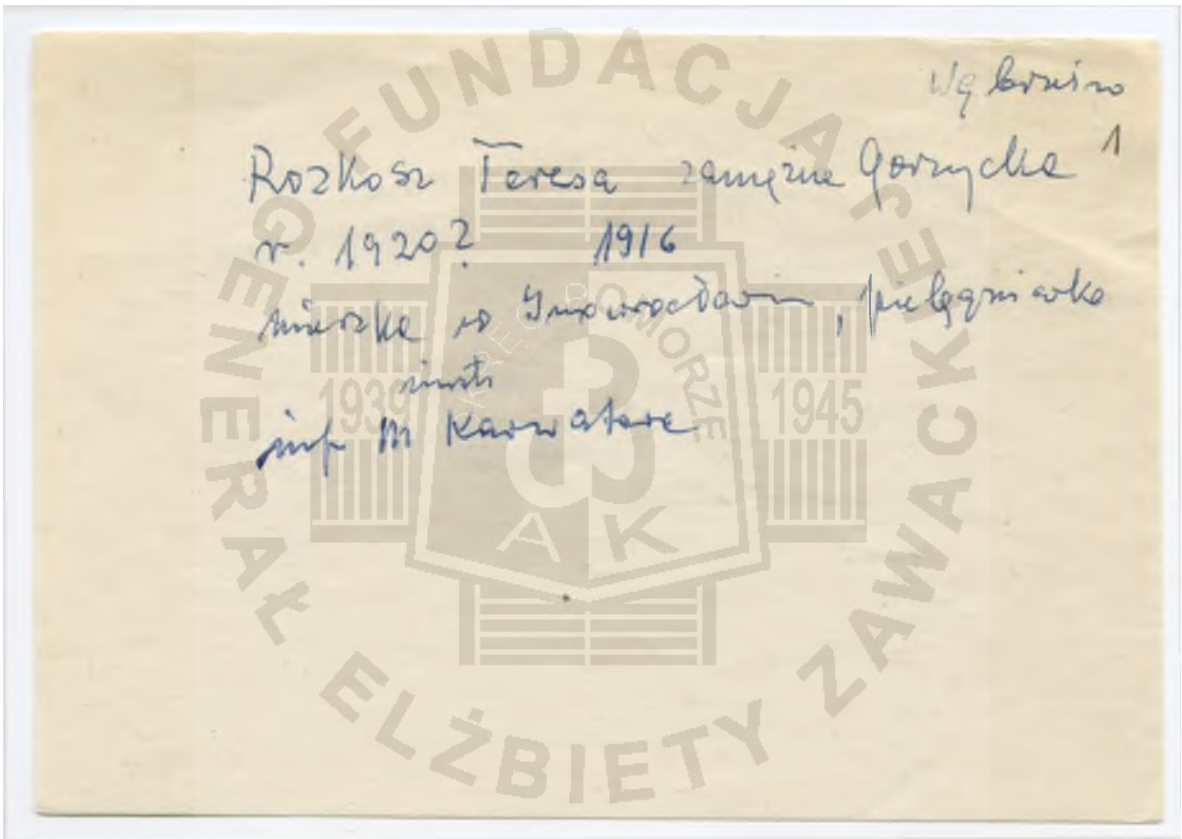 Wąbrzeźno
1
Rozkosz Teresa zamężna Gorzycka
r. 1920? 1916
mieszka w Inowrocławiu, pielęgniarka
inf M Karwatowa
FUNDACJA
GENERAŁ ELŻBIETY ZAWACKIEJ
OKRĘG POMORZE
1939
1945
AK